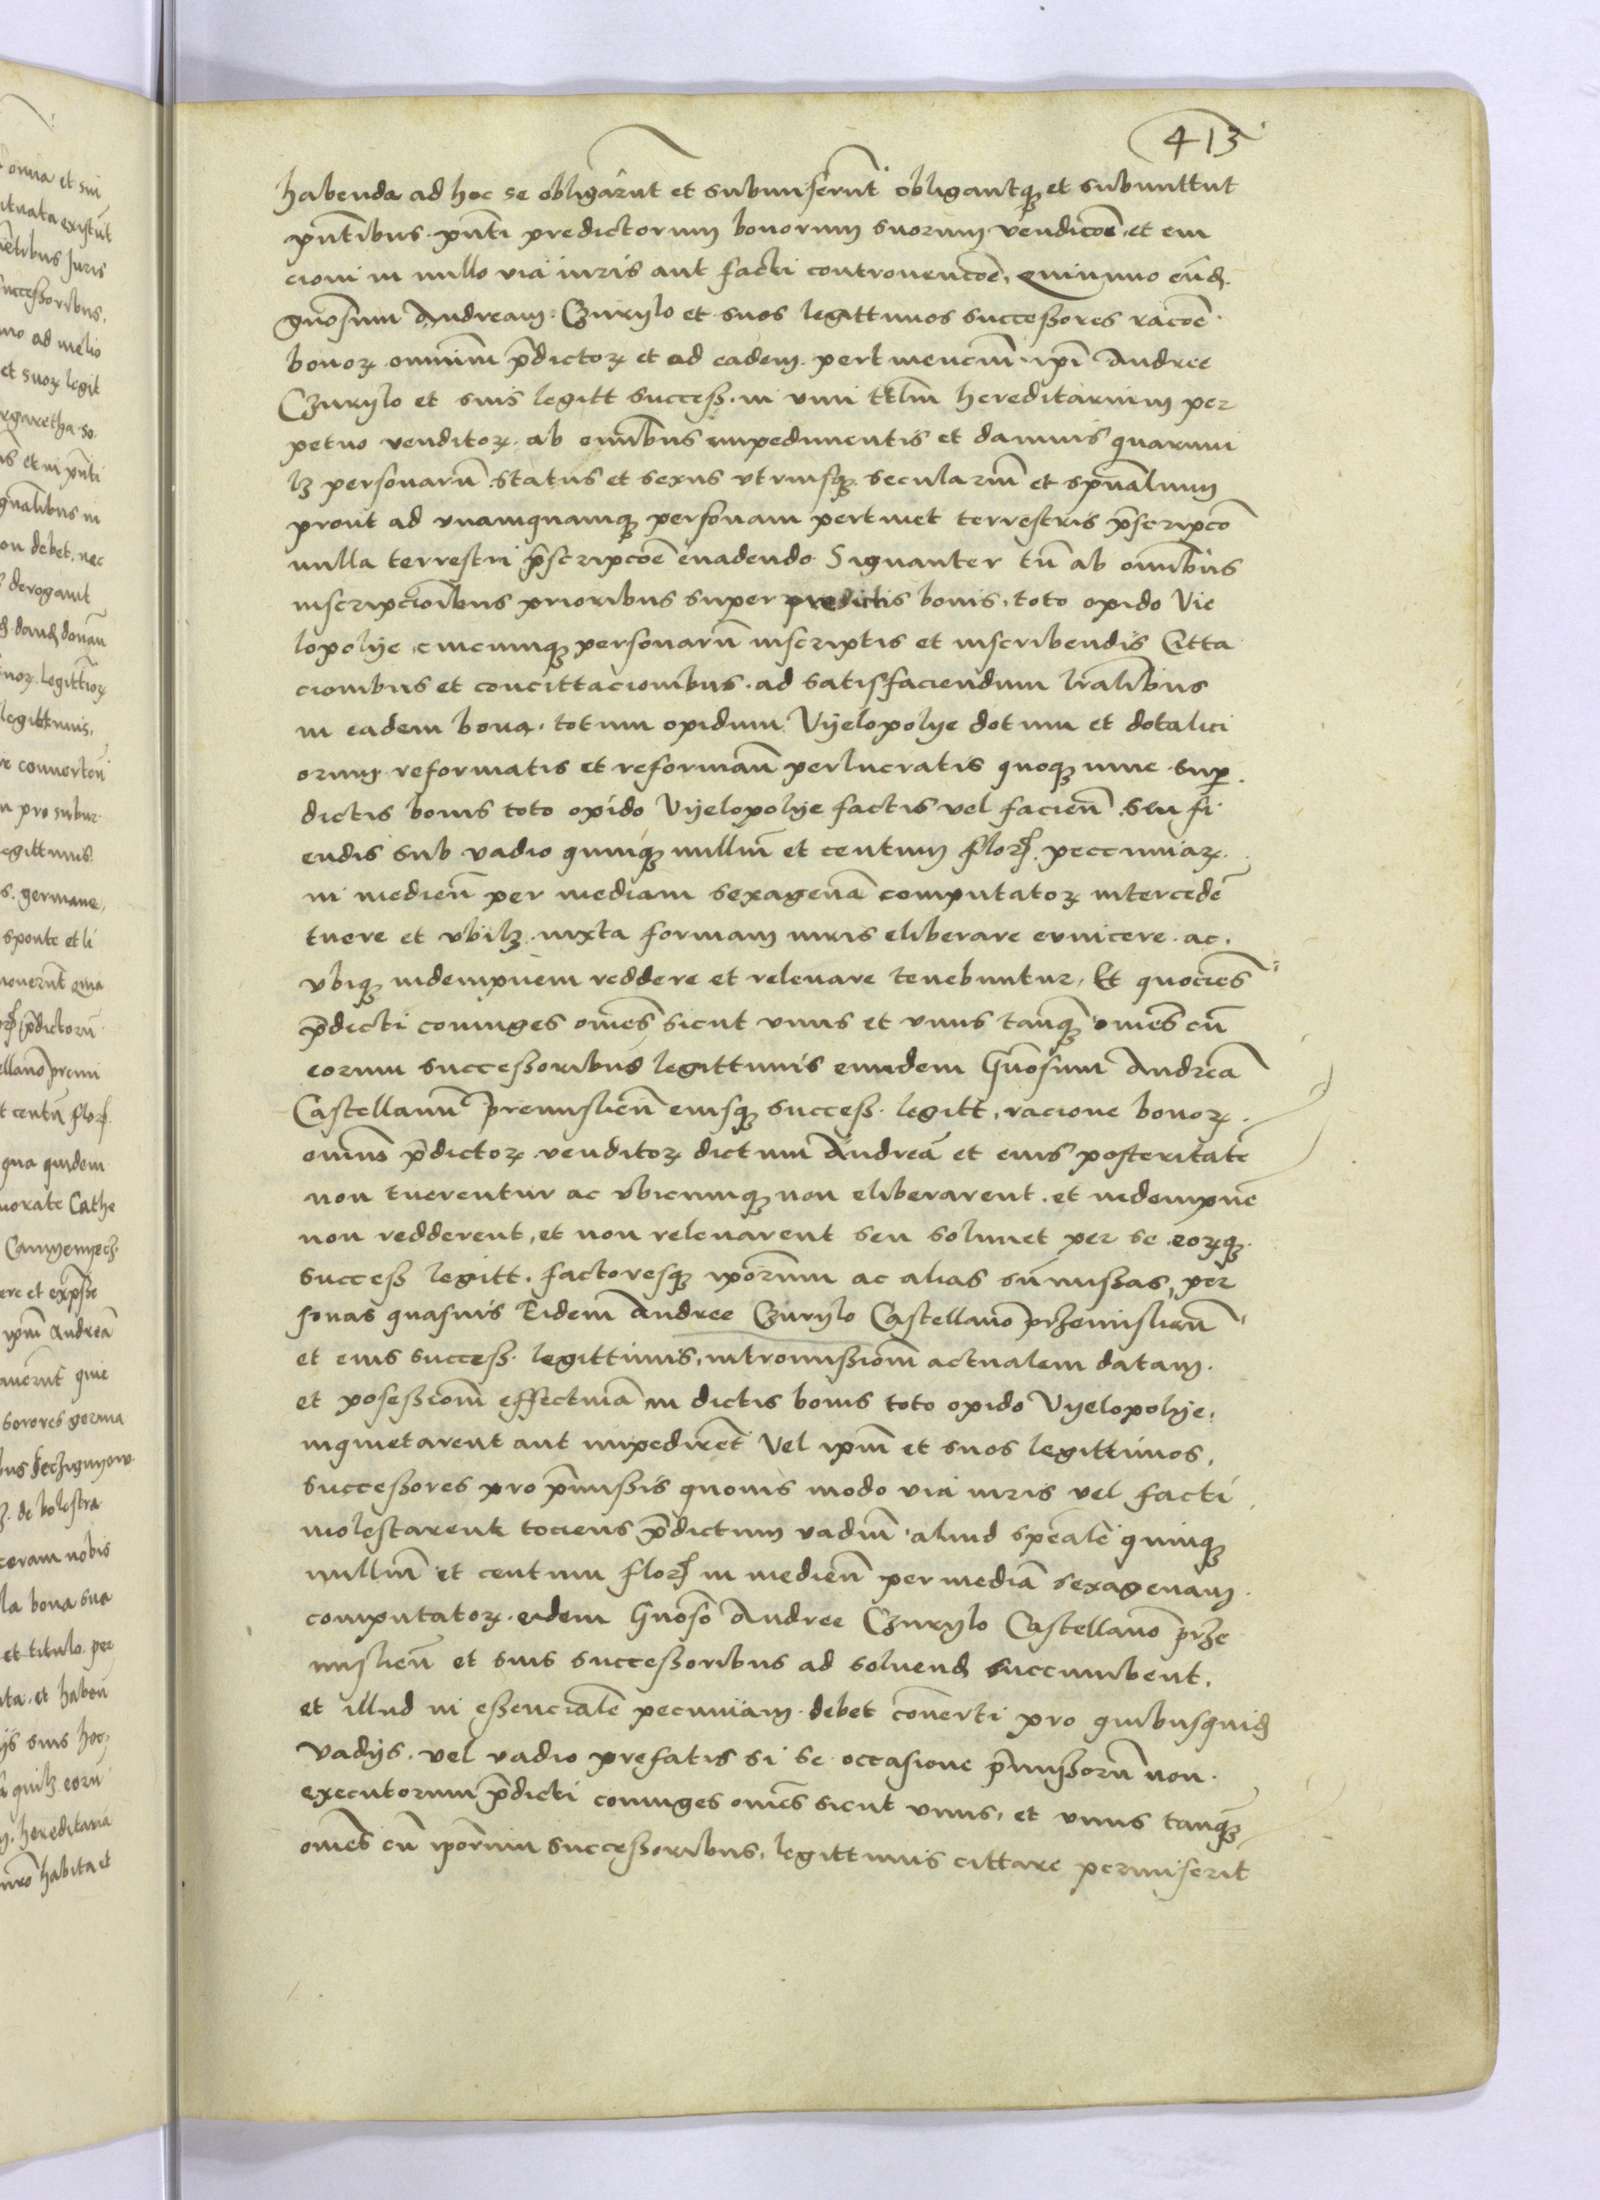 413
habenda ad hoc se obligarūt et submiserūt obligantq et submittūt
pntibus pnti predictorum bonorum suorum vendicōe et em
cioni in nullo via iuris aut facti controuencōe, quinimo eūd
gnosum Andream Czurylo et suos legittimos successores racōe
bonoꝝ omnium p̄dictoꝝ et ad eadem pertinenciū ipi Andree
Czurylo et suis legitt success. in vim ttlm hereditarium per
petuo venditoꝝ ab omibus impedimentis et damnis quarumi
lꝫ personarū status et sexus vtriusq seculariū et spūalium
prout ad vnamquamq personam pertinet terrestris p̄scripcō
nulla terrestri p̄scripcōe euadendo Signanter tn̄ ab omibus
inscripcionibus prioribus super predictis bonis, toto opido Vie
lopolye cuicumq personarū inscriptis et inscribendis Citta
cionibus et concittacionibus ad satisfaciendum lr̄alibus
in eadem bona, totum opidum Vyelopolye dotum et dotalici
orum reformatis et reformān perlucratis quoq sup
dictis bonis toto opido Vyelopolye factis vel faciēn seu fi
endis sub vadio quinq milliū et centum flor peccuniaꝝ
in mediēn per mediam sexagenā computatoꝝ intercedē
tuere et vbilꝫ iuxta formam iuris eliberare euincere ac
vbiq indempnem reddere et releuare tenebuntur, Et quociēs
p̄dicti coniuges omēs sicut vnus et vnus tanq omēs cū
eorum successoribus legittimis eundem Gnosum Andreā
Castellanū premisliēn eiusq success. legitt, racione bonoꝝ
omniū p̄dictoꝝ venditoꝝ dictum Andreā et eius posteritatē
non tuerentur ac vbicumq non eliberarent et indempnē
non redderent, et non releuarent seu solimet per se eoꝝq
success legitt. factoresq ipōrum ac alias sūmissas, per
sonas quasuis Eidem Andree Czurylo Castellano przemisliēn
et eius success. legittimis, intromissionē actualem datam
et posessionē effectiuā in dictis bonis toto opido Vyelopolye,
inquietarent aut impedirēt Vel ipm̄ et suos legittimos,
successores pro p̄missis quouis modo via iuris vel facti
molestarent tociens p̄dictum vadiū aliud speālē quinq
milliū et centum flor in mediēn per mediā sexagenam
computatoꝝ eidem Gnoso Andree Czurylo Castellano prze
misliēn et suis successoribus ad soluend succumbent,
et illud in essencialē pecuniam debet cōuerti pro quibusquid
vadys, vel vadio prefatis si se occasione p̄missorū non
executorum p̄dicti coniuges omēs sicut vnus, et vnus tanq
omēs cū ipōrum successoribus, legittimis cittare permiserit